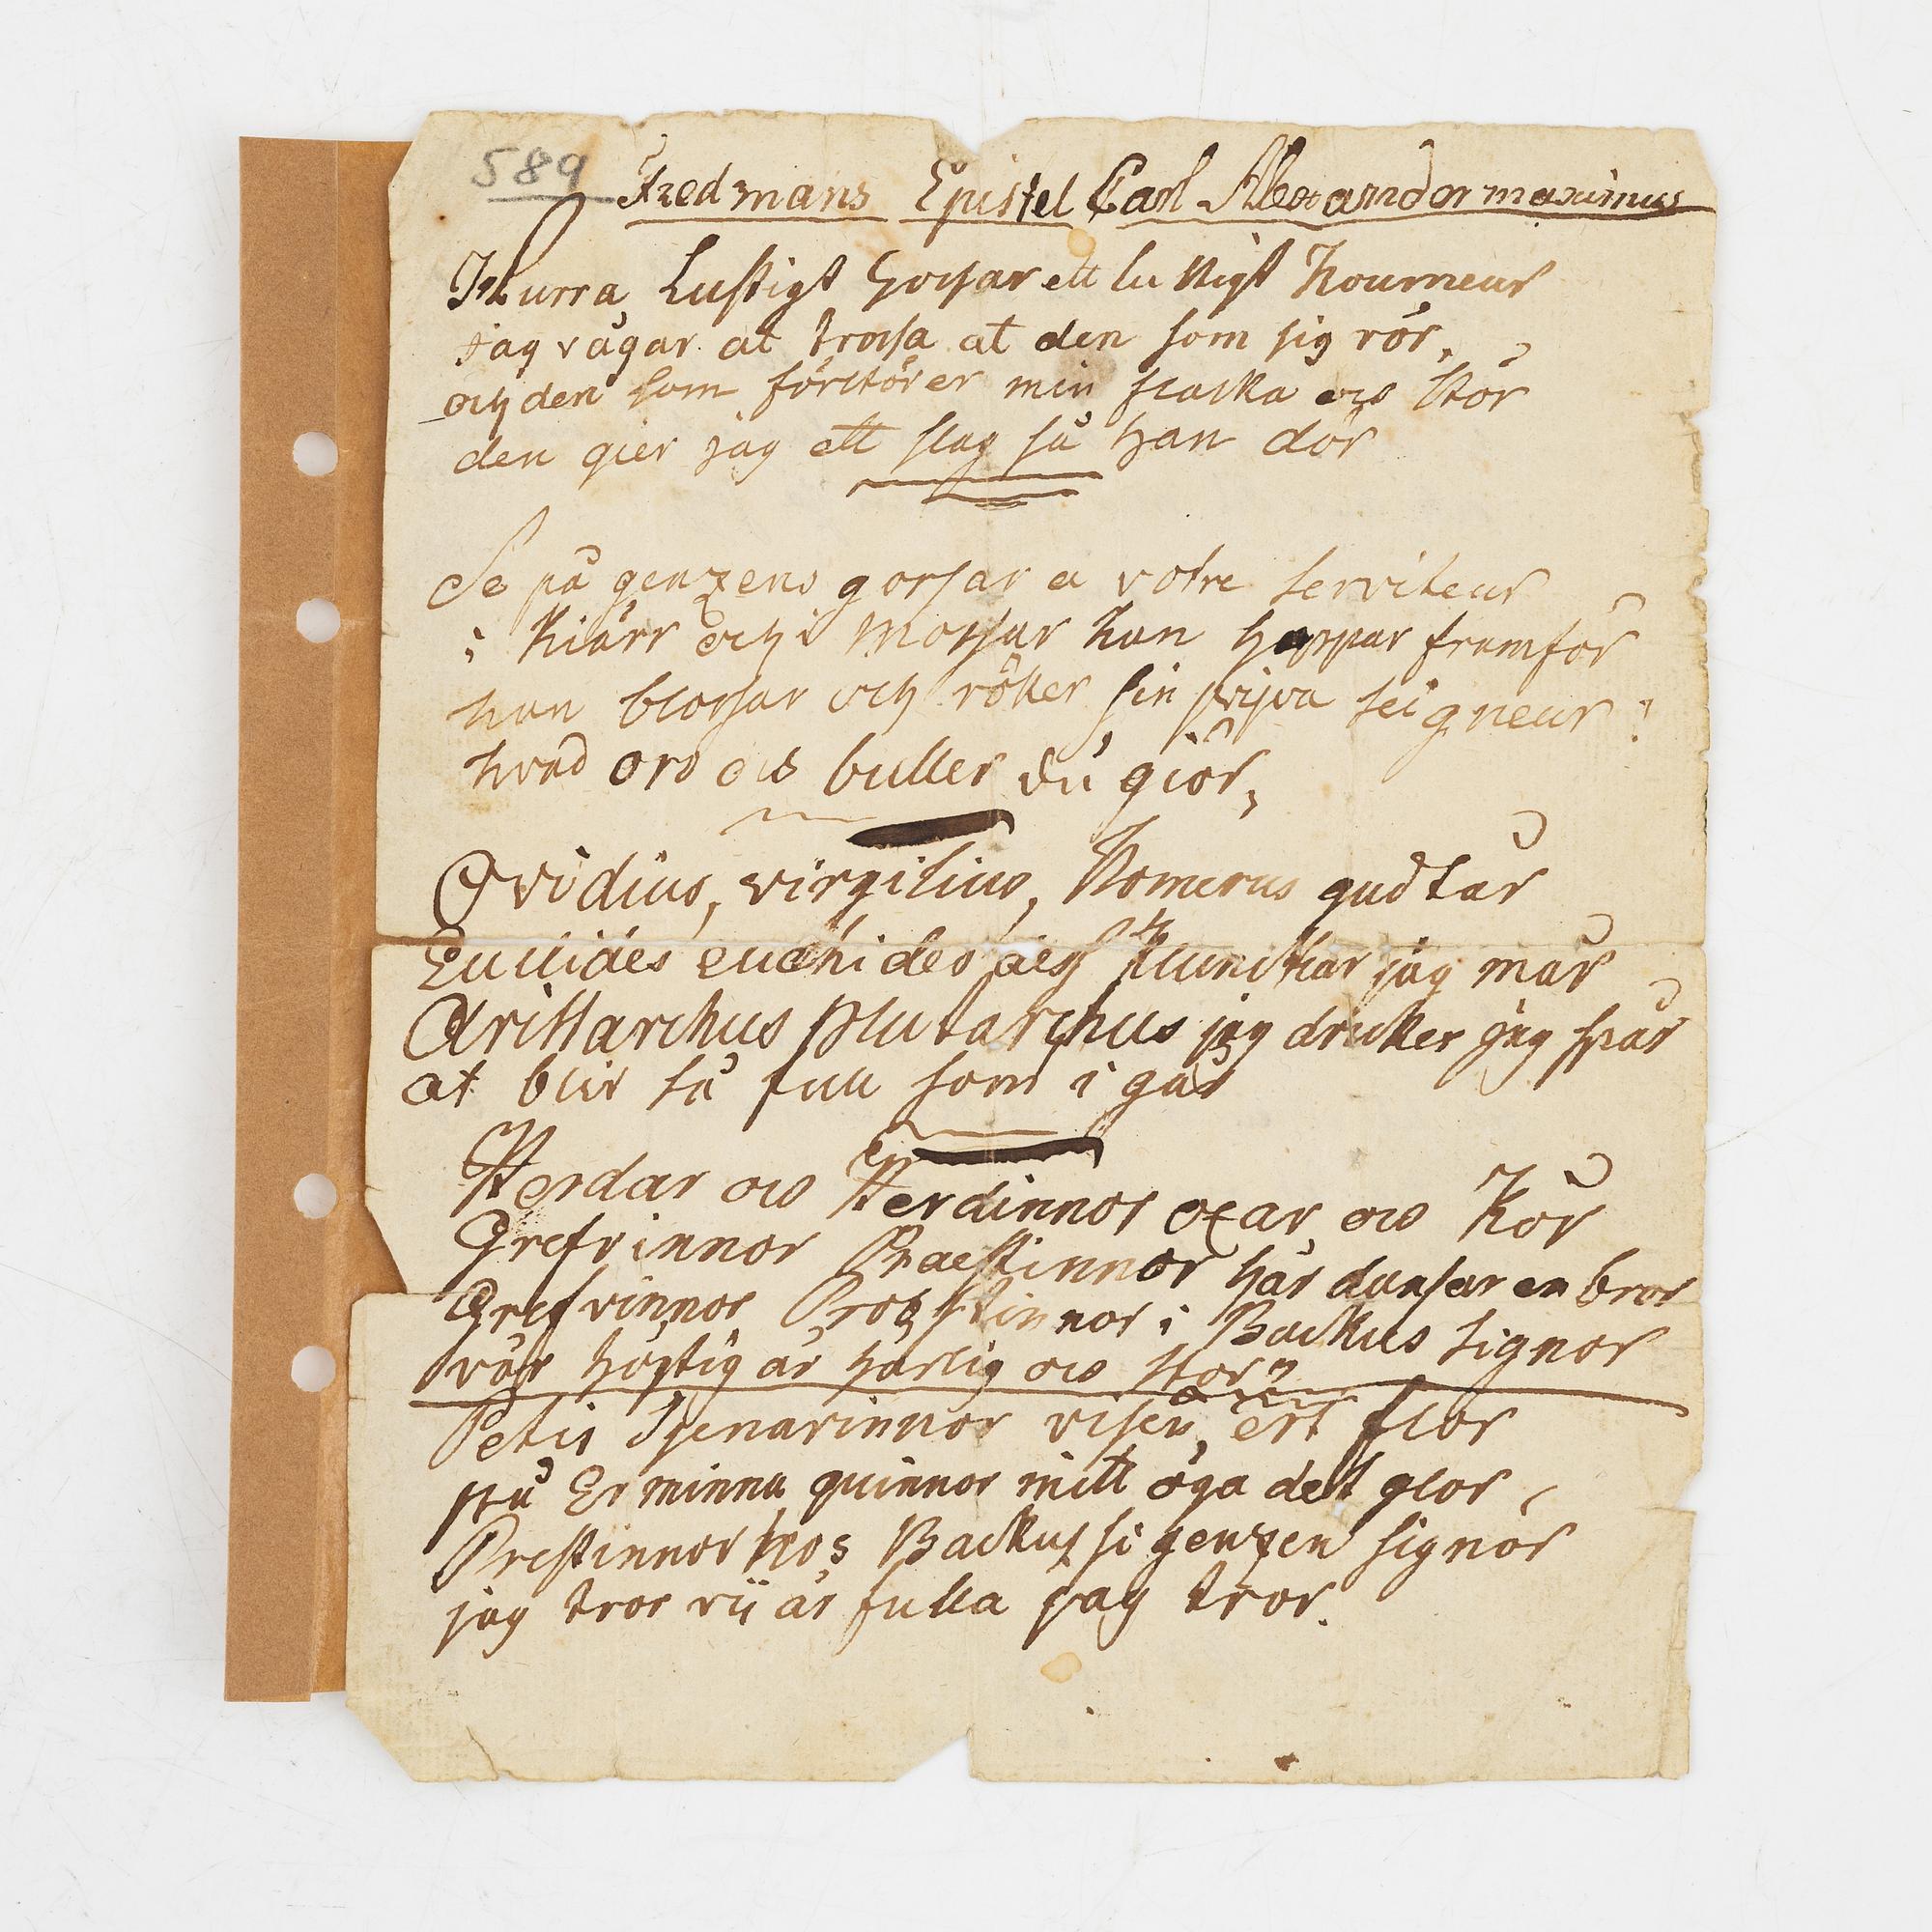 589
Fredmans Epistel Carl Alexandor maximus
Hurra Lustigt gossar ett lustigt houmeur
jag vågar at trotsa at den som sig rör,
och den som förstörer min flaska och stör
den gier jag ett slag så han dör
Se på genzens gossar a votre serviteur
i kiärr och i mossar han hoppar framför
han blossar och röker sin pijpa seigneur!
hvad oro och buller du giör,
Ovidius, virgilius, Homerus gudtar
Euclides euchides sjunkar jag mår
Aristarchus plutarchus jag dricker jag spår
at blir så full som i går
Herdar och Herdinnor oxar och kor
Grefvinnor Praestinnor här dansar en bror
Grefvinnor Probstinnor i Backus signor
vår högtig är härlig och stor
Petis Tjenarinnor visen ert flor
på Er minna quinnor mitt öga det glor
Prestinnor hos Backus si genzen signor
jag tror vij är fulla jag tror.